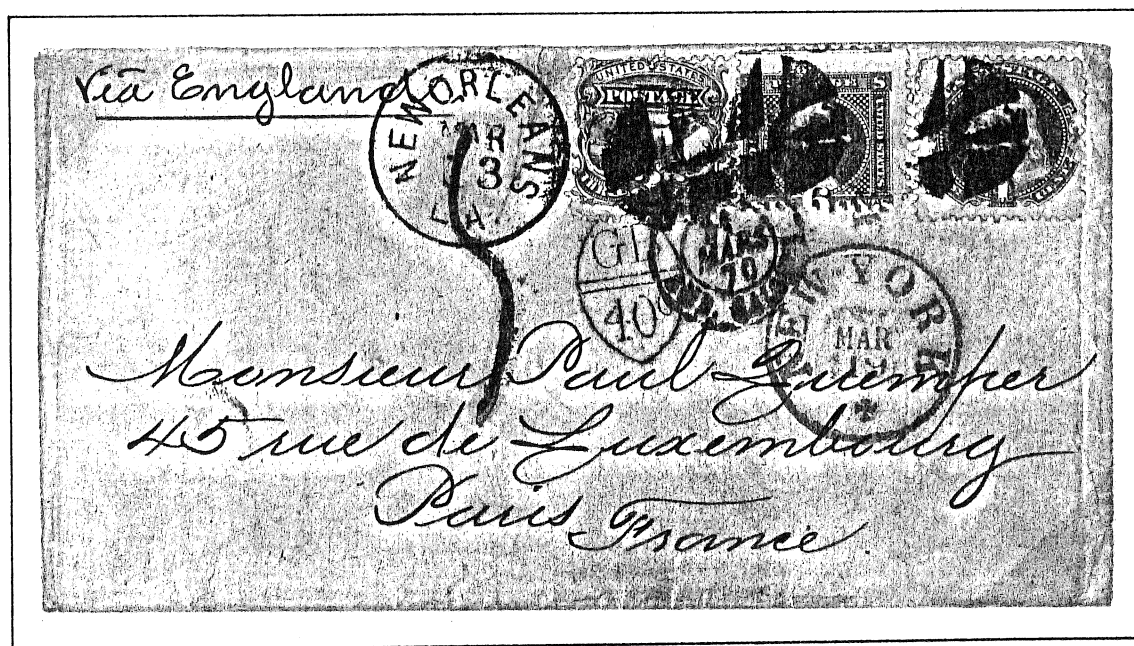 Via England
NEW ORLEANS
MAR
3
LA.
UNITED STATES
POSTAGE
GB
40c
MARS
70
NEW YORK
MAR
Monsieur Paul Guemper
45 rue de Luxembourg
Paris
France